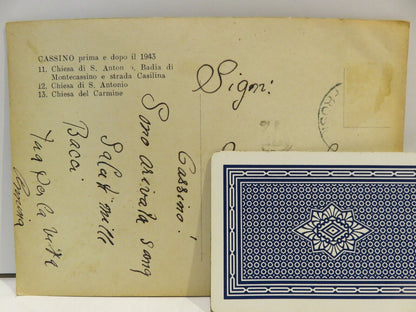 CASSINO prima e dopo il 1943
11. Chiesa di S. Anton o, Badia di
Montecassino e strada Casilina
12. Chiesa di S. Antonio
13. Chiesa del Carmine
Sign:
Cassino!
Sono arivata song
Saluti mille
Bacci
tua per la vita